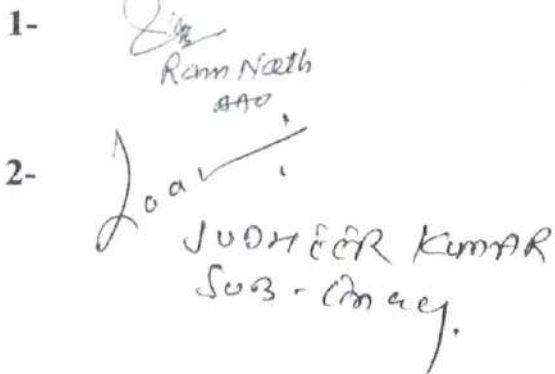 1-
Ram Nath
AAO
2-
SUDHEER KUMAR
SUB-